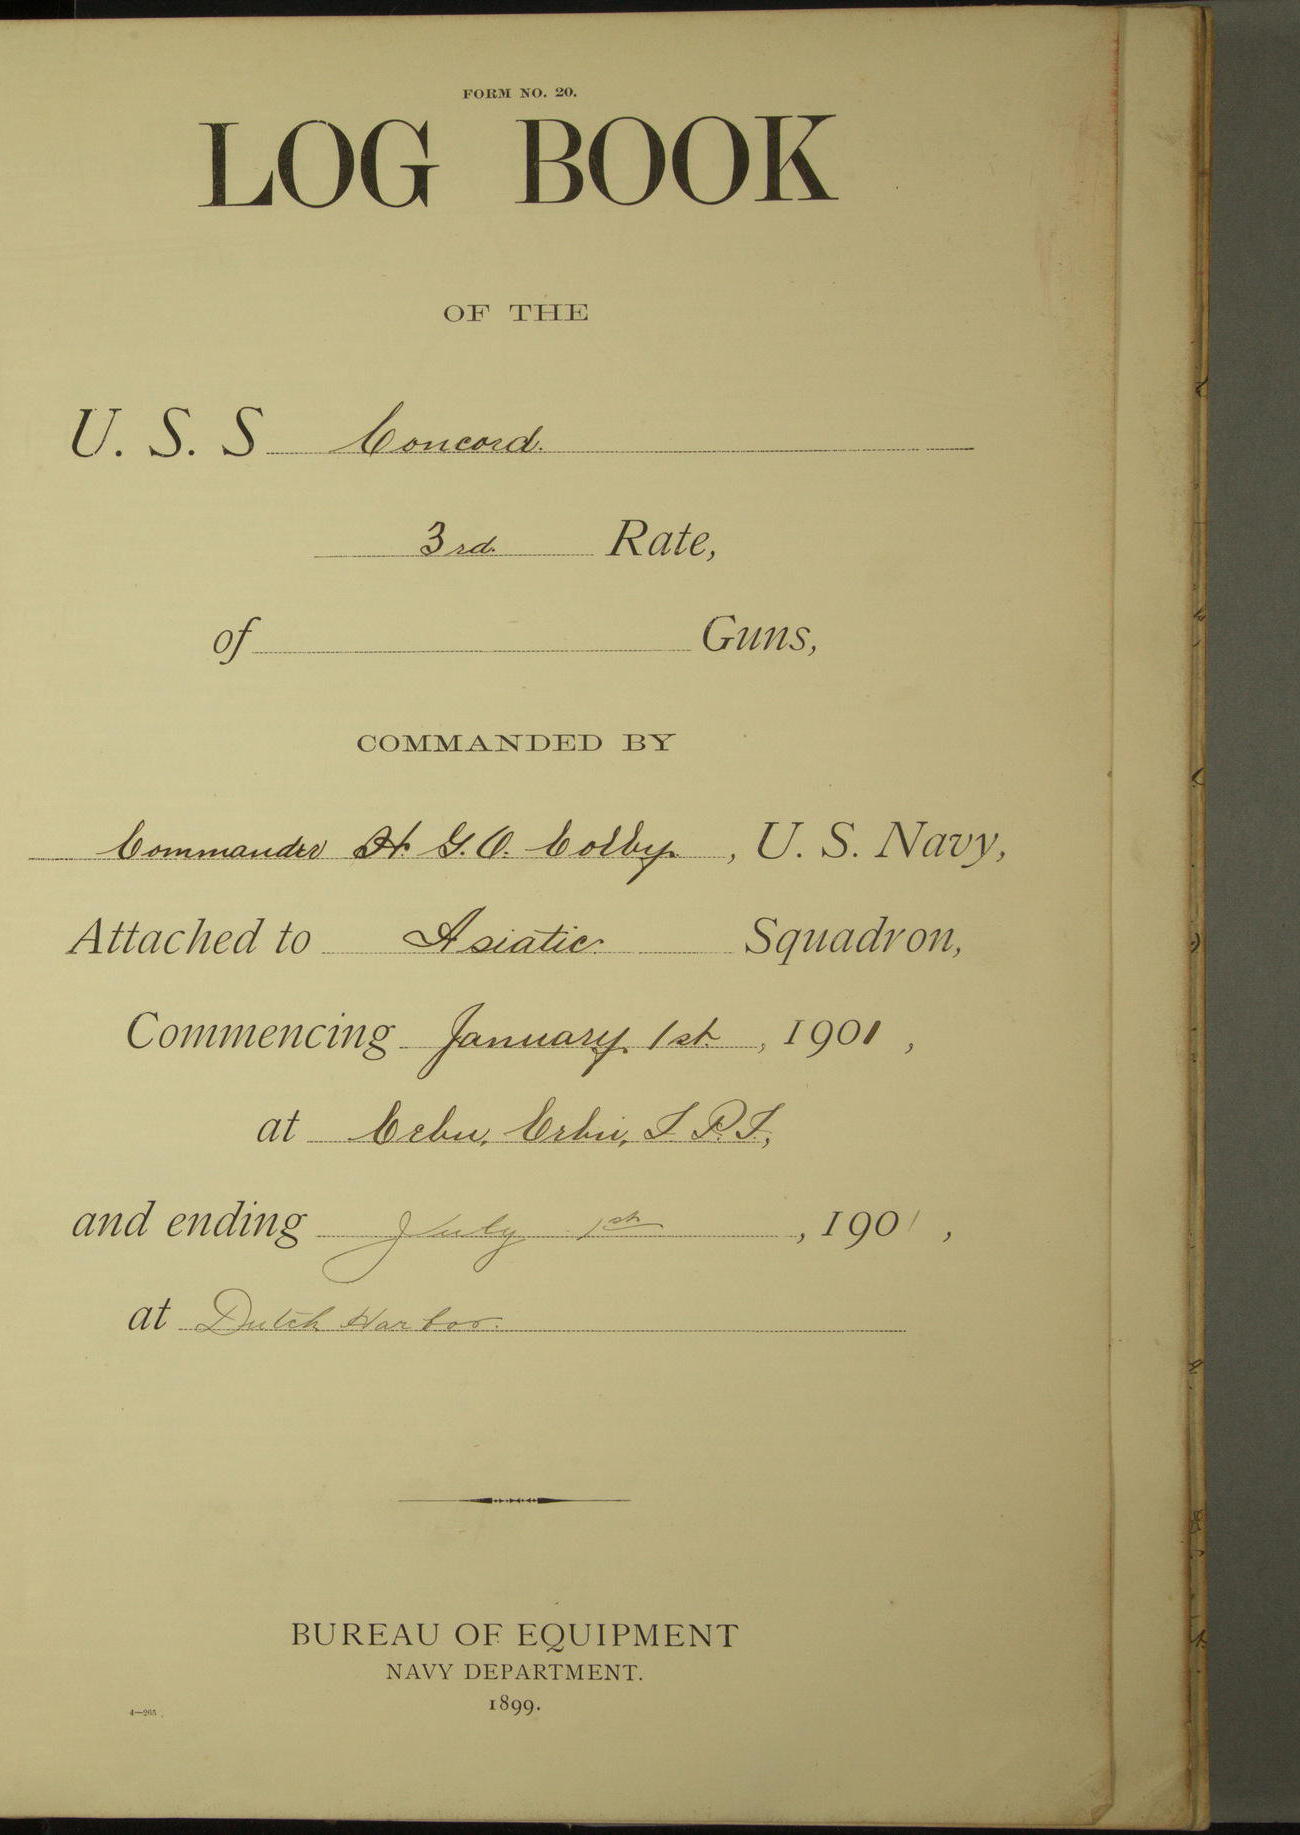 FORM NO. 20.
LOG BOOK
OF THE
U. S. S Concord.
3rd. Rate,
of Guns,
COMMANDED BY
Commander H. G. O. Colby, U. S. Navy,
Attached to Asiatic. Squadron,
Commencing January 1st., 1901,
at Cebu, Cebu, P. I.,
and ending July 1st, 1901,
at Dutch Harbor.
BUREAU OF EQUIPMENT
NAVY DEPARTMENT.
1899.
4—265